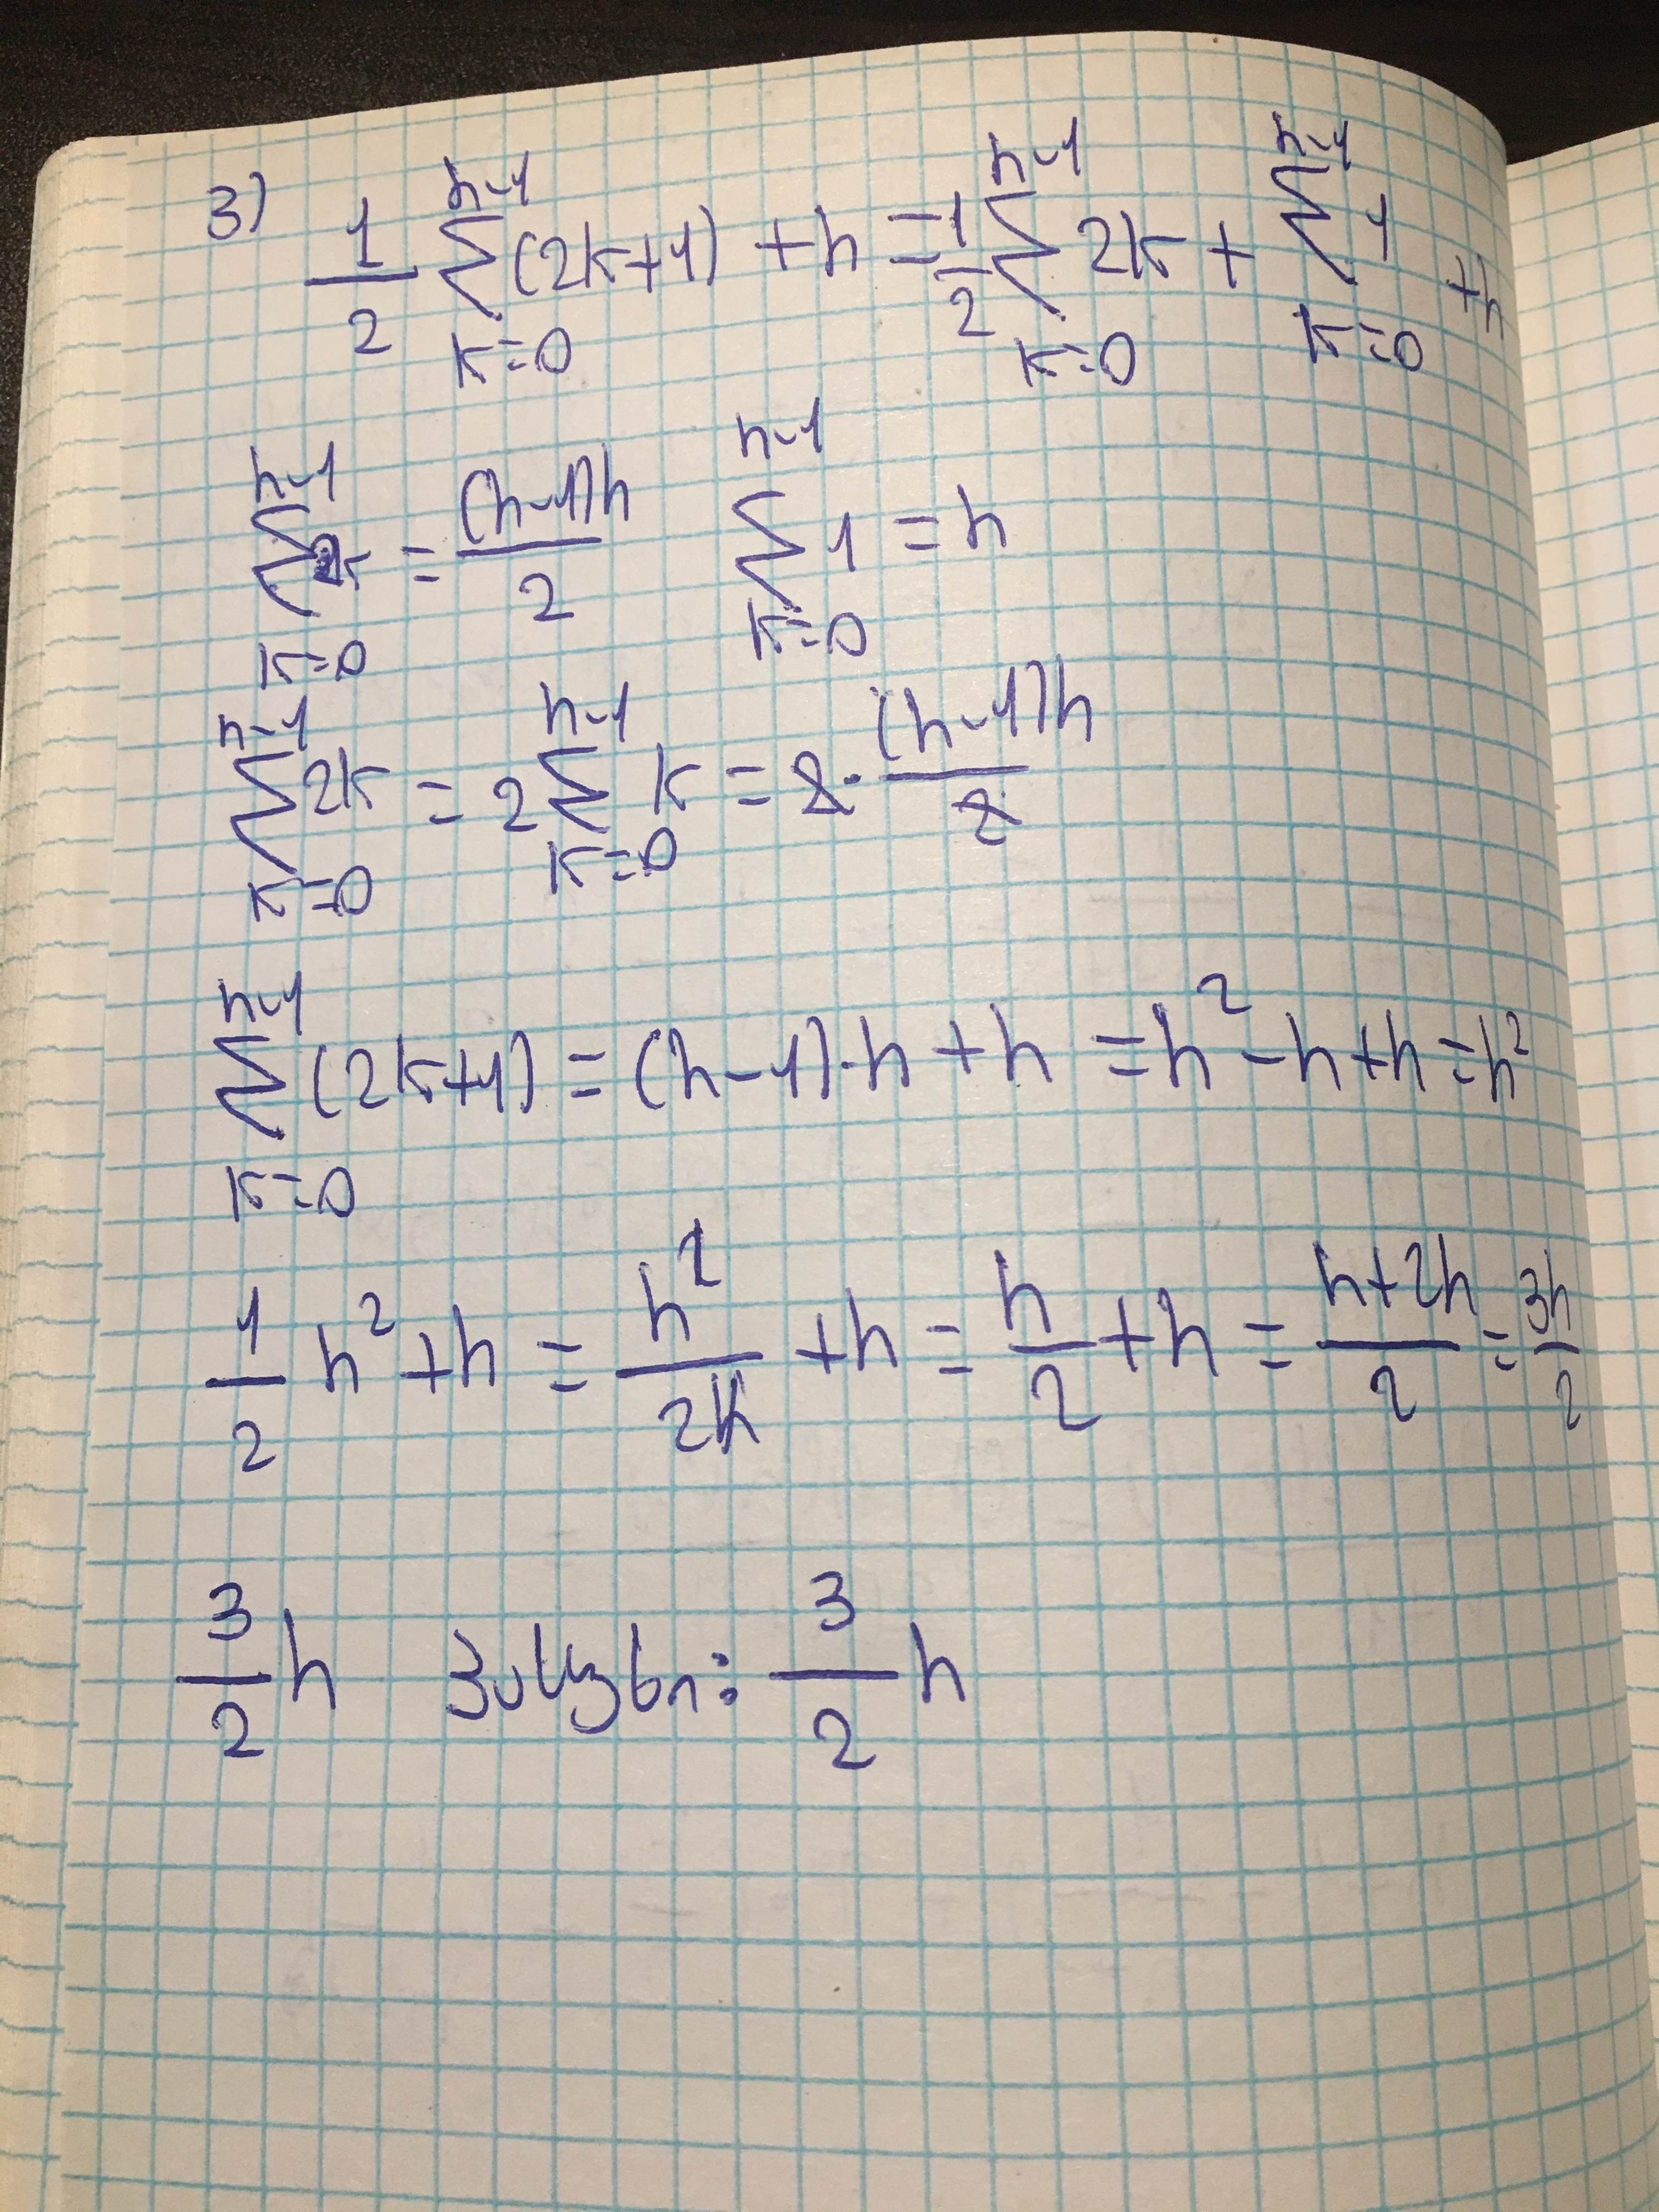 3) 1/2 ∑_{k=0}^{n-1} (2k+1) + n = 1/2 ∑_{k=0}^{n-1} 2k + ∑_{k=0}^{n-1} 1 + n
∑_{k=0}^{n-1} k = (n-1)n/2 ∑_{k=0}^{n-1} 1 = n
∑_{k=0}^{n-1} 2k = 2 ∑_{k=0}^{n-1} k = 2 · (n-1)n/2
∑_{k=0}^{n-1} (2k+1) = (n-1)·n + n = n² - n + n = n²
1/2 n² + n = n²/2n + n = n/2 + n = n+2n/2 = 3n/2
3/2 n : 3/2 n